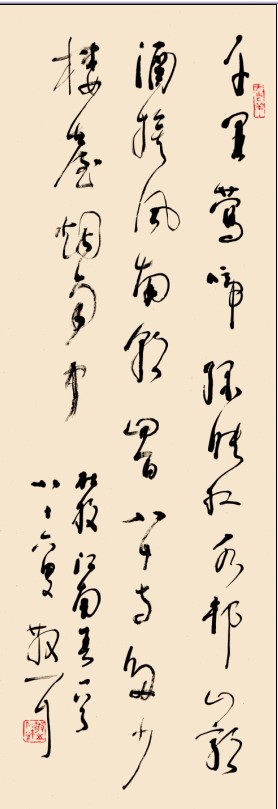 千里鶯啼綠映紅水邨山郭
酒旗風南朝四百八十寺多少
樓臺烟雨中
杜牧江南春一首
八十六叟